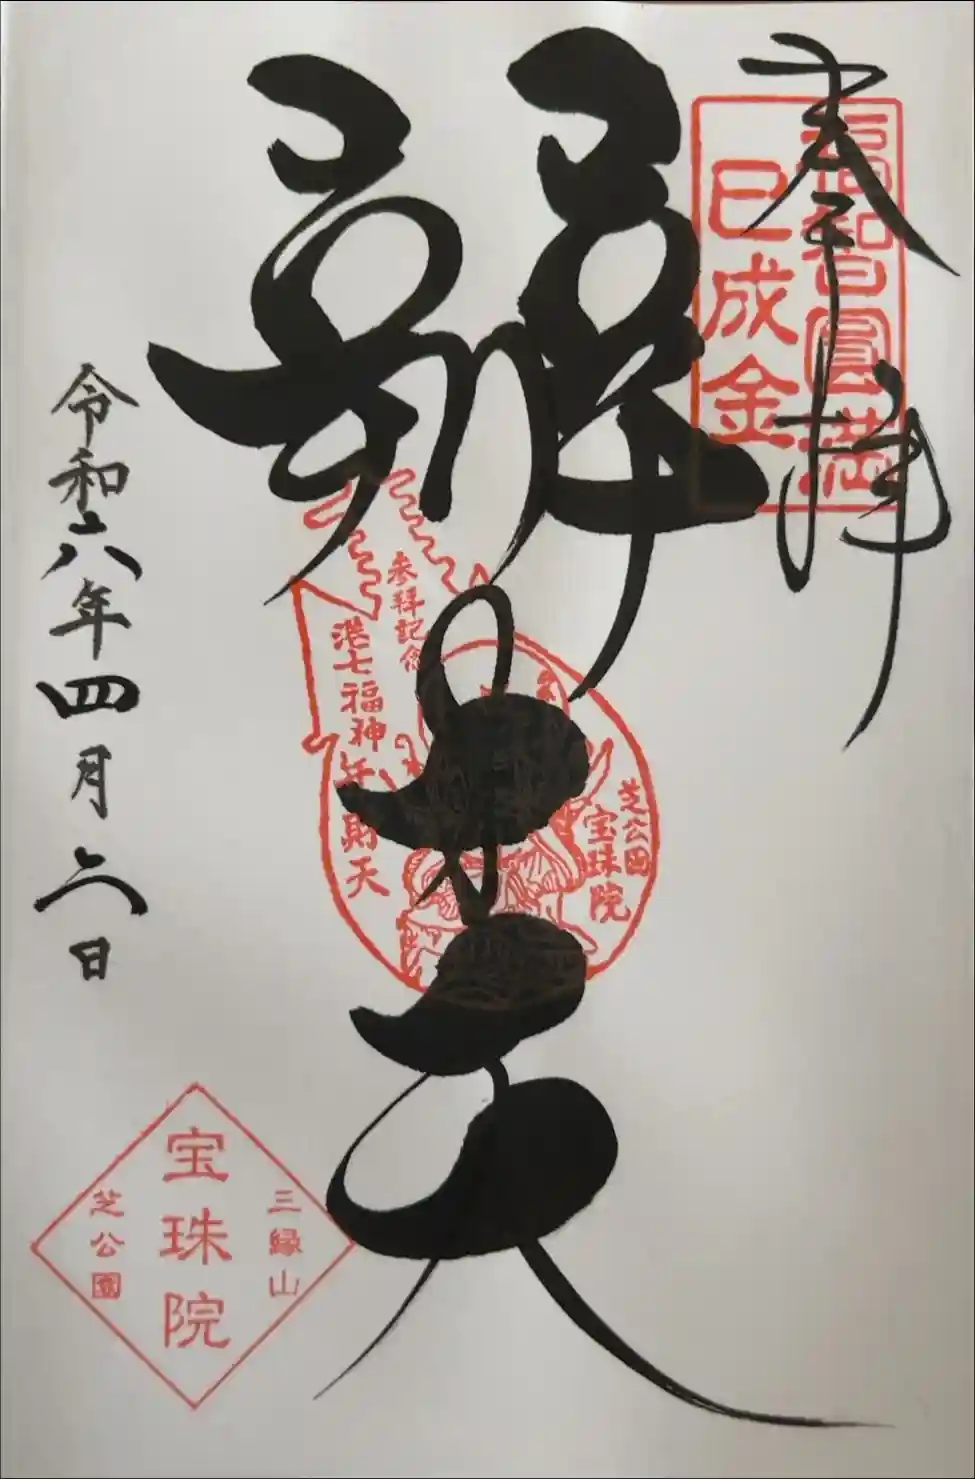 奉拝
福智圓満
巳成金
辨才天
参拝記念
港七福神弁財天
芝公園
宝珠院
令和六年四月六日
三縁山
宝珠院
芝公園